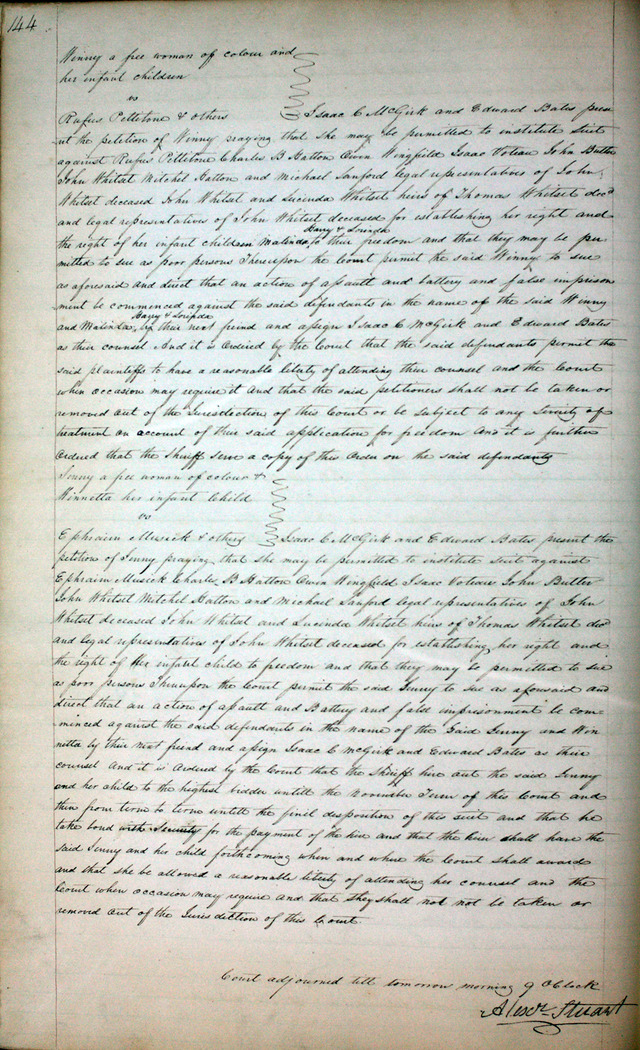 144
Winny a free woman of colour and
her infant children
vs
Rufus Pettibone & others Isaac C McGirk and Edward Bates pres
ent the petition of Winny praying that she may be permitted to institute suit
against Rufus Pettibone Charles B Hatton Owen Wingfield Isaac Voteau John Butler
John Whitset Mitchel Hatton and Michael Sanford legal representatives of John
Whitset deceased John Whitset and Lucinda Whitset heirs of Thomas Whitset decd
and legal representatives of John Whitset deceased for establishing her right and
Harry & Lorinda
the right of her infant children Malinda to their freedom and that they may be per
mitted to sue as poor persons Thereupon the Court permit the said Winny to sue
as aforesaid and direct that an action of assault and battery and false imprison
ment be commenced against the said defendants in the name of the said Winny
Harry & Lorinda
and Malinda by their next friend and assign Isaac C McGirk and Edward Bates
as their counsel And it is ordered by the Court that the said defendants permit the
said plaintiffs to have a reasonable liberty of attending their counsel and the Court
when occasion may require it and that the said petitioners shall not be taken or
removed out of the Jurisdiction of this Court or be subject to any severity of
treatment on account of their said application for freedom And it is further
ordered that the Sheriff serve a copy of this order on the said defendants
Jenny a free woman of colour &
Winnetta her infant Child
vs
Ephraim Musick & others Isaac C McGirk and Edward Bates present the
petition of Jenny praying that she may be permitted to institute suit against
Ephraim Musick Charles B Hatton Owen Wingfield Isaac Voteau John Butler
John Whitset Mitchel Hatton and Michael Sanford legal representatives of John
Whitset deceased John Whitset and Lucinda Whitset heirs of Thomas Whitset decd
and legal representatives of John Whitset deceased for establishing her right and
the right of Her infant child to freedom and that they may be permitted to sue
as poor persons Thereupon the Court permit the said Jenny to sue as aforesaid and
direct that an action of assault and Battery and false imprisonment be com
menced against the said defendants in the name of the said Jenny and Win
netta by their next friend and assign Isaac C McGirk and Edward Bates as their
counsel And it is ordered by the Court that the Sheriff hire out the said Jenny
and her child to the highest bidder untill the November Term of this Court and
then from term to term untill the final disposition of this suit and that he
take bond with Security for the payment of the hire and that the hirer shall have the
said Jenny and her child forthcoming when and where the Court shall award
and that she be allowed a reasonable liberty of attending her counsel and the
Court when occasion may require and that they shall not not be taken or
removed out of the Jurisdiction of this Court
Court adjourned till tomorrow morning 9 OClock
Alexr Stuart